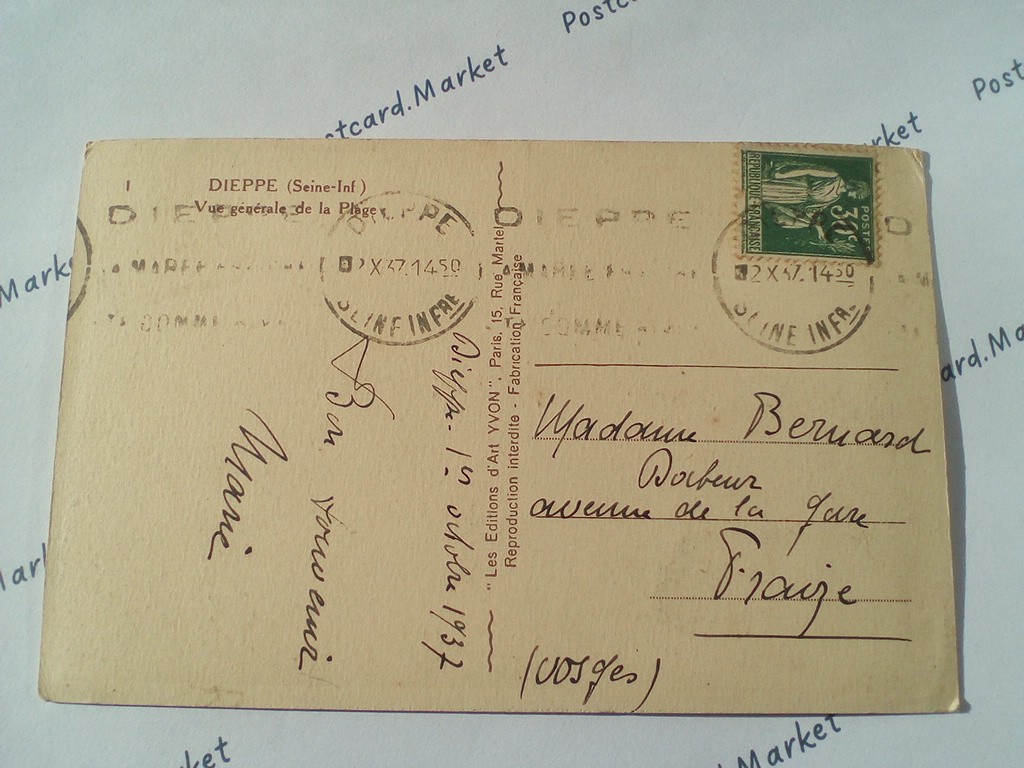 Postcard.Market
Postcard.Market
1
DIEPPE (Seine-Inf)
Vue générale de la Plage
DIEPPE
DIEPPE
2 X 37. 14 50
SEINE INFRE
DIEPPE
2 X 37. 14 30
SEINE INFRE
REPUBLIQUE FRANÇAISE
POSTES
"Les Editions d'Art YVON", Paris, 15, Rue Martel
Reproduction interdite - Fabrication Française
Dieppe. 1er octobre 1937
Bon souvenir
Marie
Madame Bernard
avenue de la gare
Fraize
(Vosges)
Market
ard.Ma
ket
ard.Market